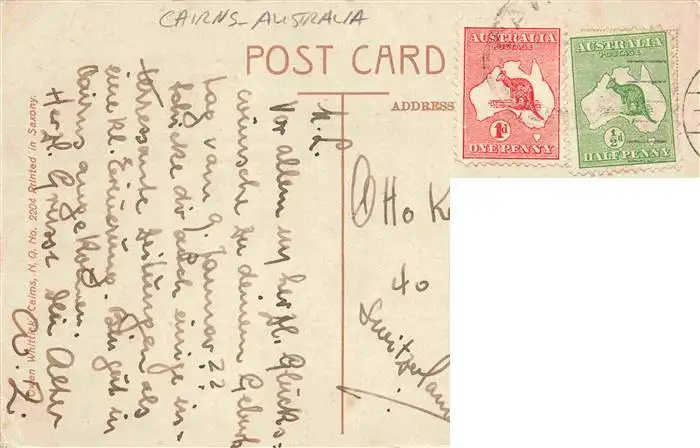 CAIRNS - AUSTRALIA
POST CARD
ADDRESS
AUSTRALIA
POSTAGE
1d
ONE PENNY
AUSTRALIA
POSTAGE
½d
HALF PENNY
M. L.
Vor allem m herzl. Glücks-
wünsche zu deinem Geburts
tag vom 9. Januar ??
schicke dir auch einige in-
terressante Zeitungen als
eine kl. Erinnerung. Bin gut in
Cairns angekommen.
Herzl. Grüsse Dein Alter
Otto K
40
Switzerland
Whittick, Cairns, N. Q. No. 2204 Printed in Saxony.